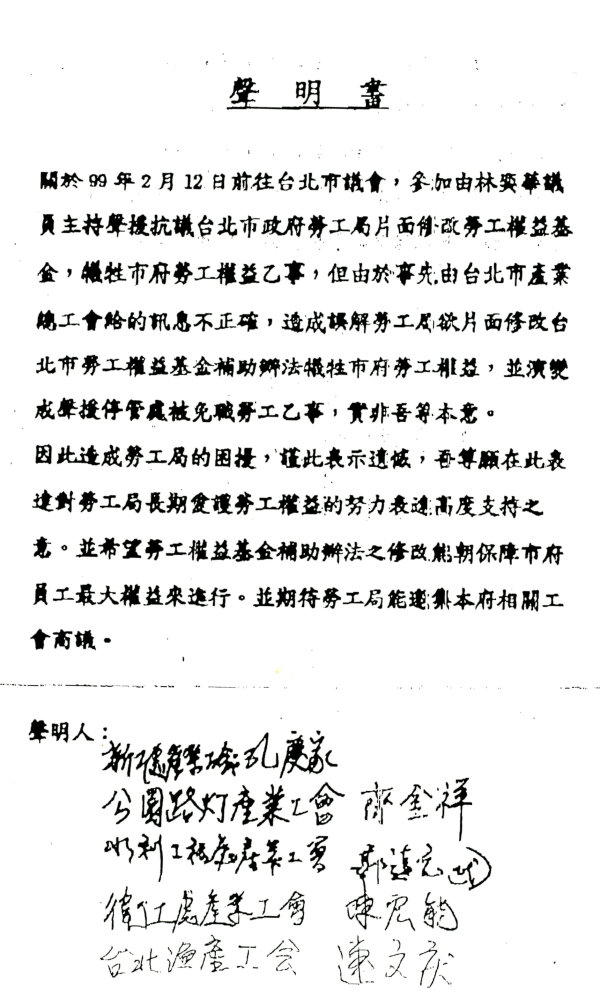 聲明書
關於99年2月12日前往台北市議會，參加由林奕華議
員主持聲援抗議台北市政府勞工局片面修改勞工權益基
金，犧牲市府勞工權益乙事，但由於事先由台北市產業
總工會給的訊息不正確，造成誤解勞工局欲片面修改台
北市勞工權益基金補助辦法犧牲市府勞工權益，並演變
成聲援停管處被免職勞工乙事，實非吾等本意。
因此造成勞工局的困擾，謹此表示遺憾，吾等願在此表
達對勞工局長期愛護勞工權益的努力表達高度支持之
意。並希望勞工權益基金補助辦法之修改能朝保障市府
員工最大權益來進行。並期待勞工局能邀集本府相關工
會商議。
聲明人：
新工處產業工會 孔慶家
公園路灯產業工會 齊金祥
水利工程處產業工會 郭
衛工處產業工會 陳宏鈞
台北漁產工会 連文慶